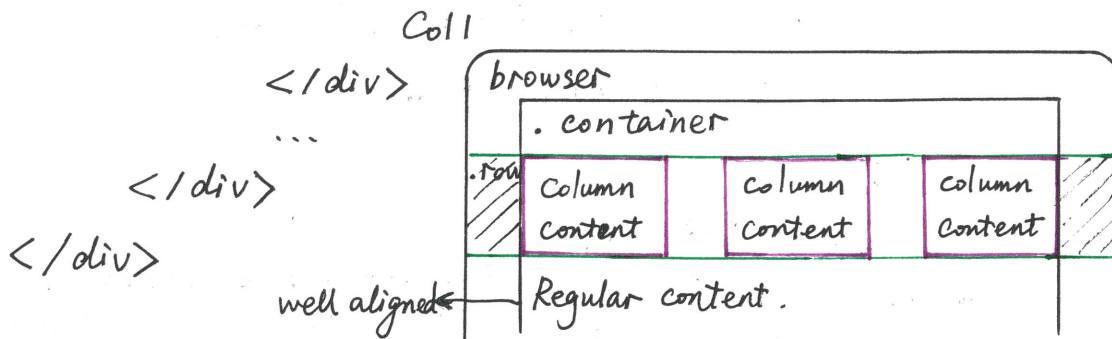 Col 1
</div>
browser
. container
...
.row
column content
column content
column content
</div>
</div>
well aligned
Regular content.